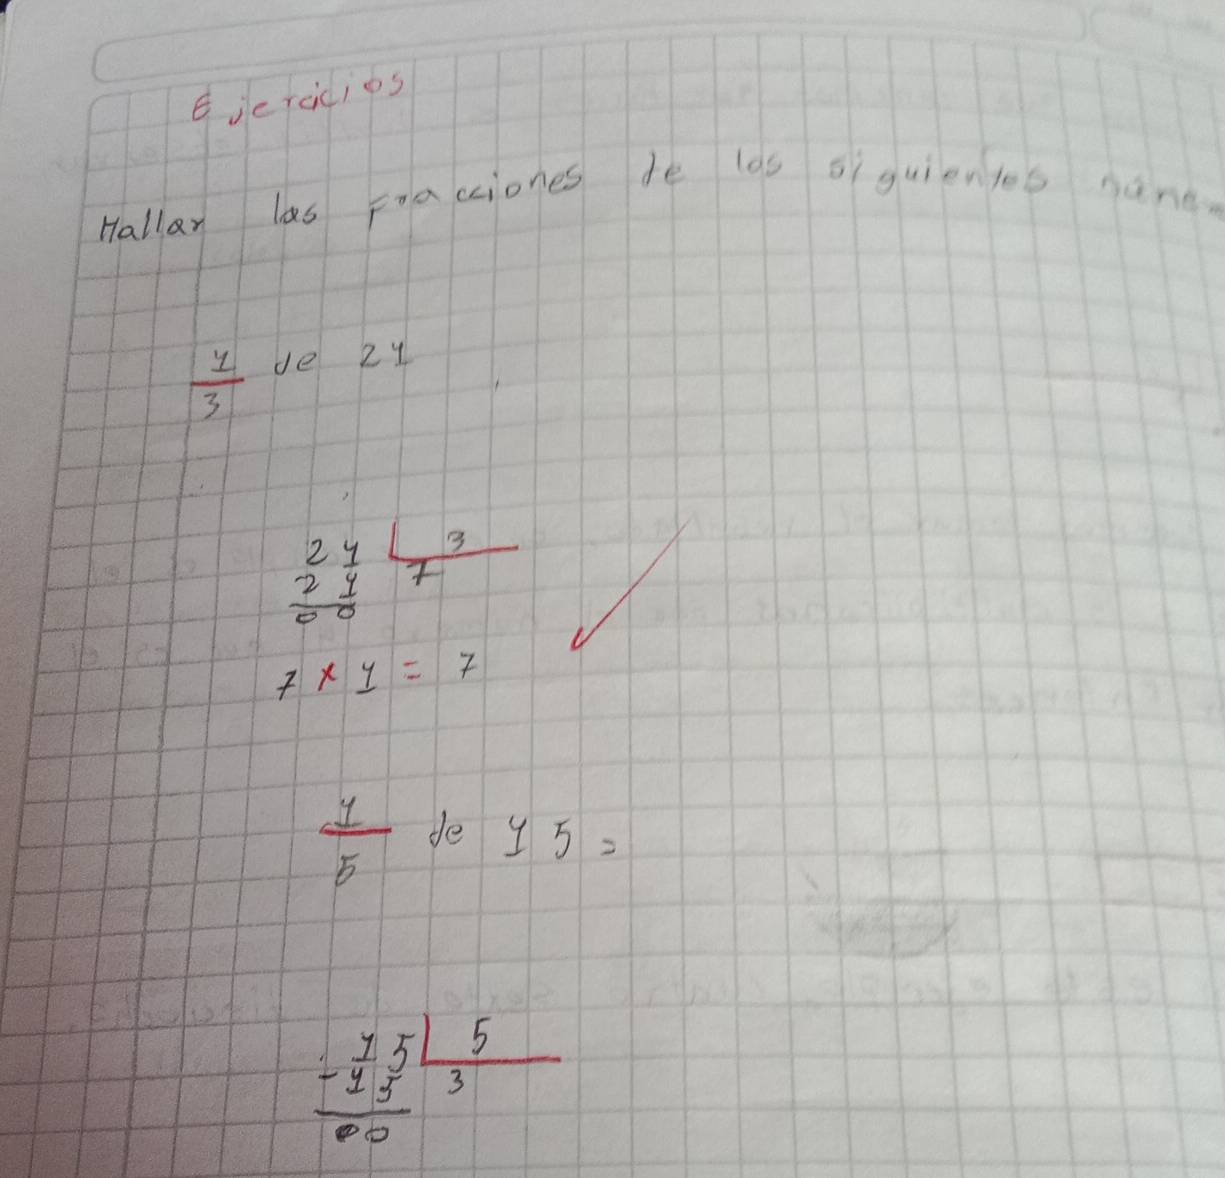 Ejercicios
Hallar las fracciones de los siguientes
1/3 de 21
21 | 3
21 7
00
7 x 1 = 7
1/5 de 15 =
15 | 5
- 15 3
00